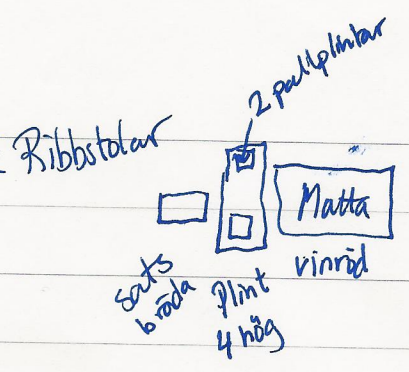 2 pallplintar
Ribbstolar
Matta
sats
bräda
Plint
4 hög
vinröd